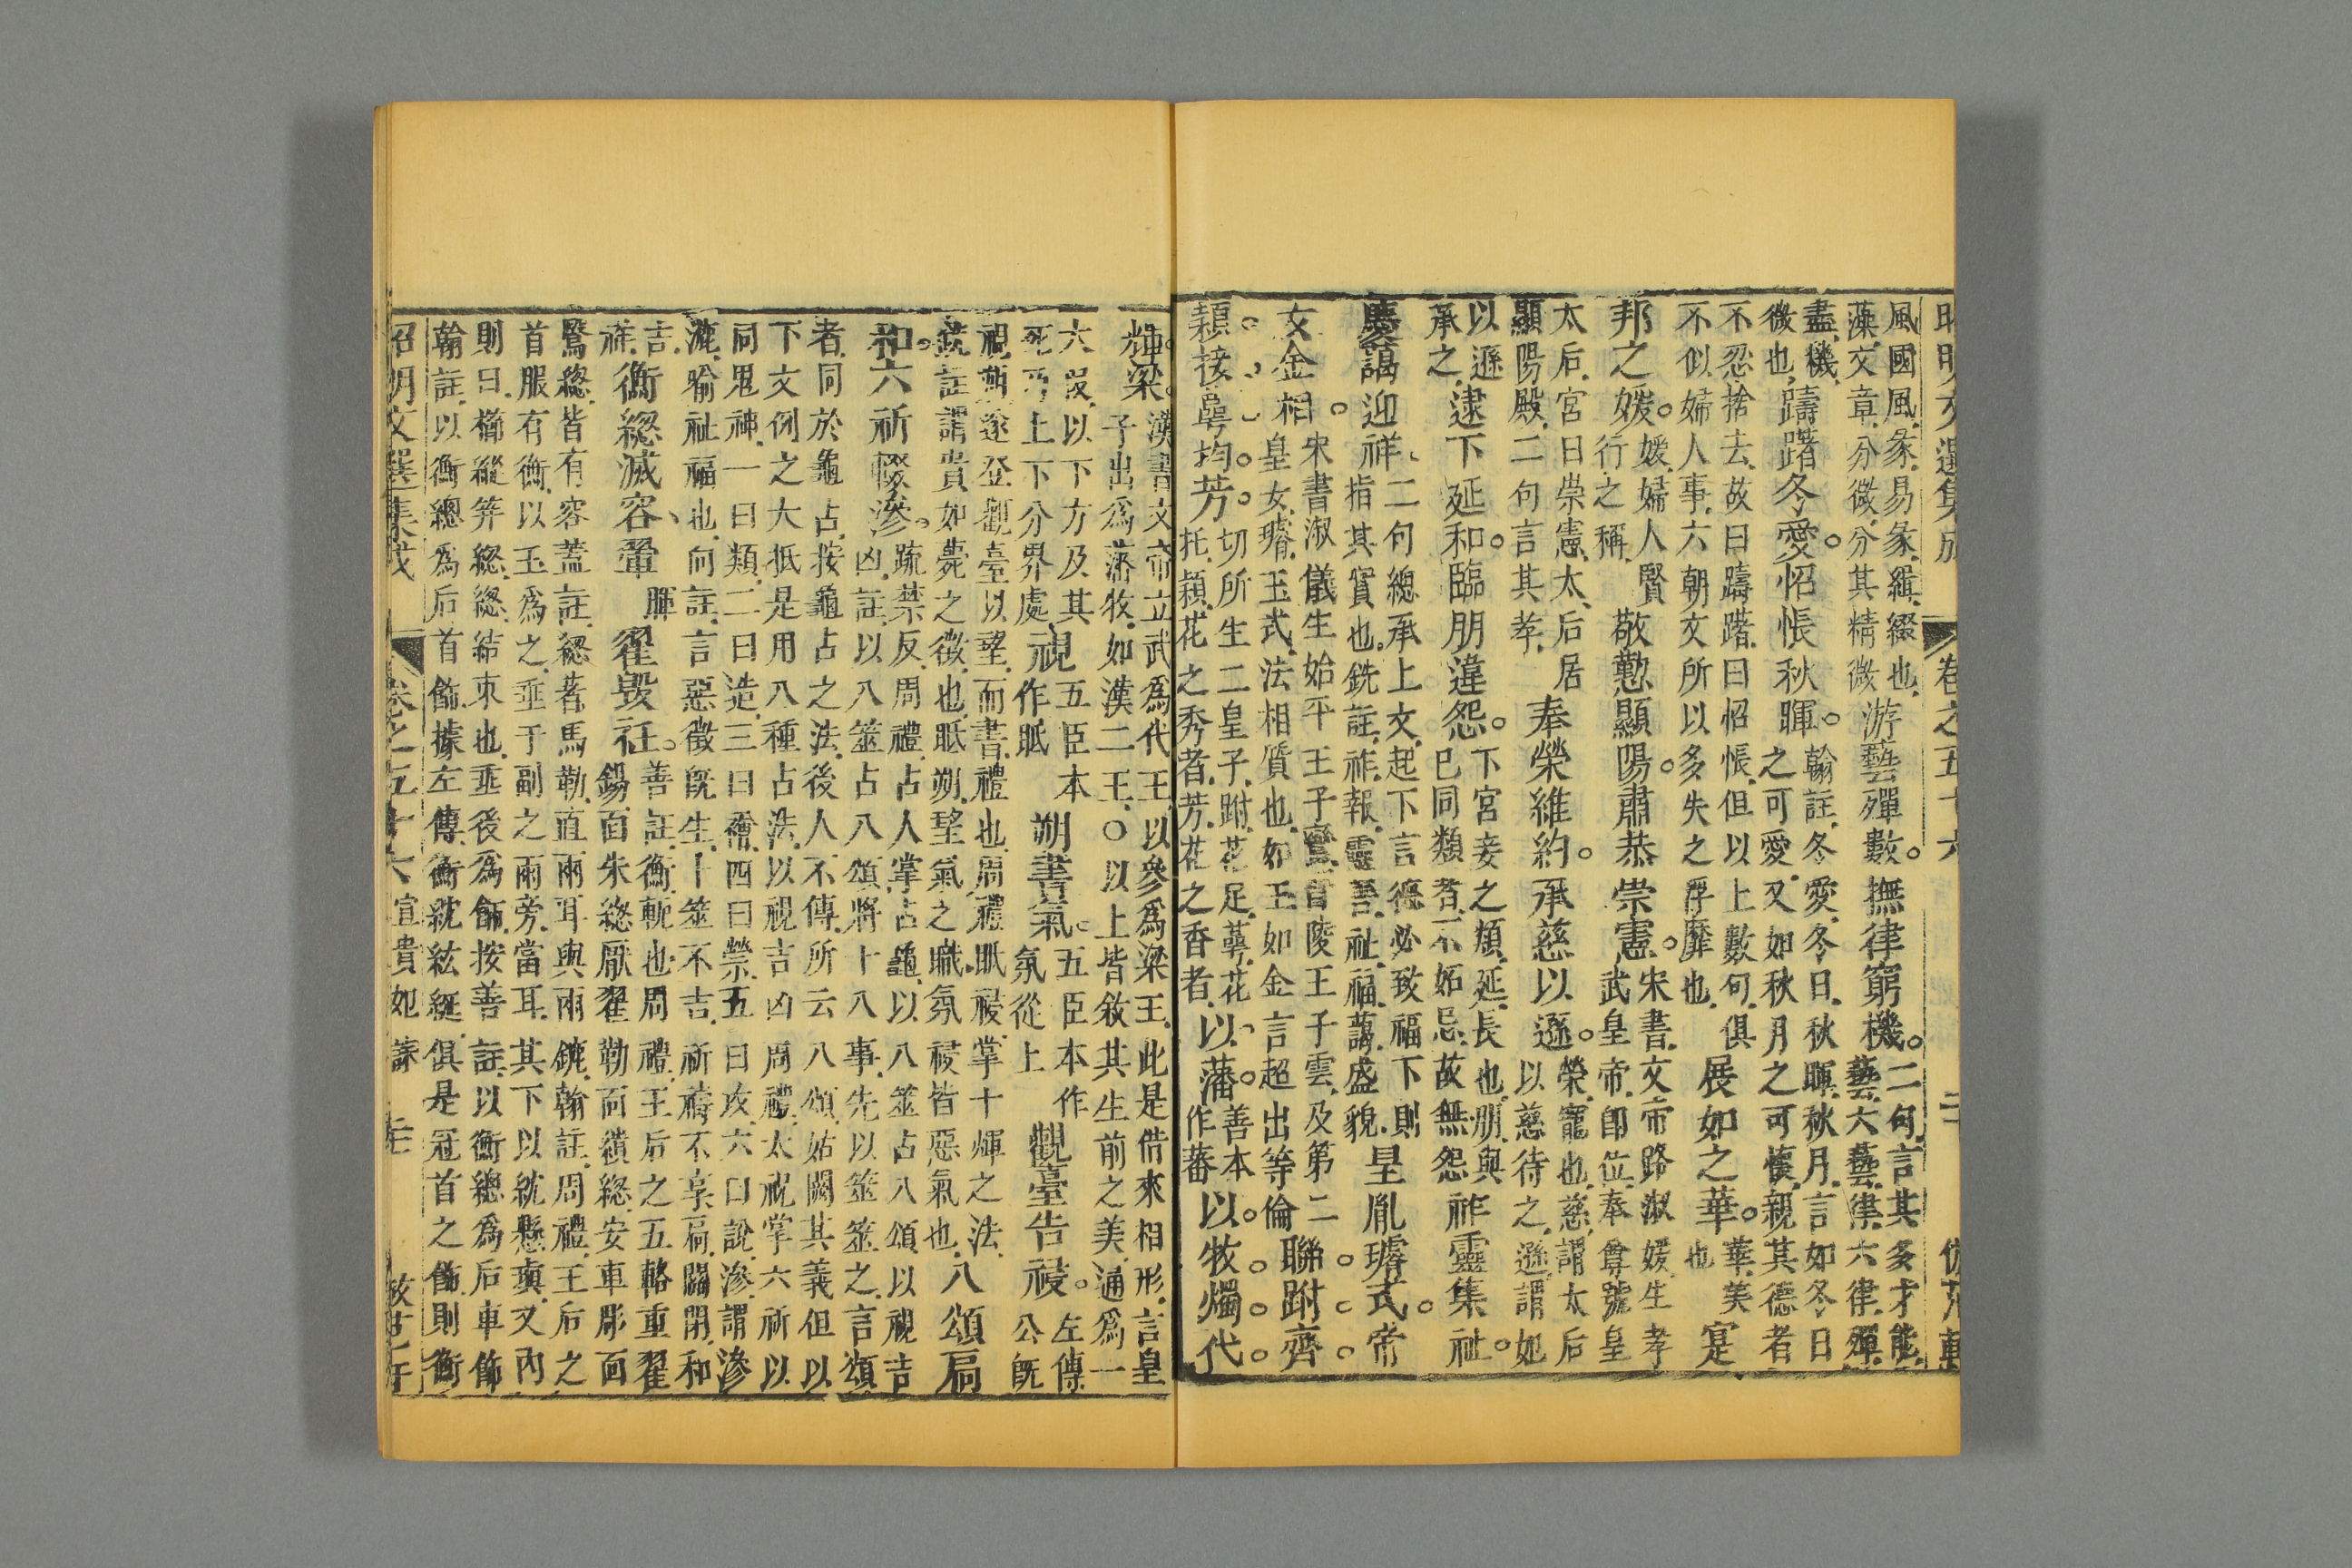 昭明文選集成
卷之五十六
二
倣范軒
風國風彖易彖緝綴也
藻文章分微分其精微
游藝殫數撫律窮機
二句言其多才能
藝六藝律六律殫
盡機
微也
躊躇冬愛怊悵秋暉
翰註冬愛冬日秋暉秋月言如冬日
之可愛又如秋月之可懷親其德者
不忍捨去故曰躊躇曰怊悵但以上數句俱
不似婦人事六朝文所以多失之浮靡也
展如之華
華美
也
寔
邦之媛
媛婦人賢
行之稱
敬勤顯陽肅恭崇憲
宋書文帝路淑媛生孝
武皇帝即位奉尊號皇
太后宮曰崇憲太后居
顯陽殿二句言其孝
奉榮維約承慈以遜
榮寵也慈謂太后
以慈待之遜謂妃
以遜
承之
逮下延和臨朋違怨
下宮妾之類延長也朋與
已同類者不妬忌故無怨
祚靈集祉
慶藹迎祥
二句總承上文起下言德必致福下則
指其實也銑註祚報靈善祉福藹盛貌
皇胤璿式帝
女金相
宋書淑儀生始平王子鸞晉陵王子雲及第二
皇女璿玉式法相質也如玉如金言超出等倫
聯跗齊
穎接萼均芳
切所生二皇子跗花足萼花
托穎花之秀者芳花之香者
以藩
善本
作蕃
以牧燭代
輝梁
漢書文帝立武為代王以參為梁王此是借來相形言皇
子出為藩牧如漢二王○以上皆敘其生前之美通為一
六段以下方及其
死乃上下分界處
視
五臣本
作眂
朔書氣
五臣本作
氛從上
觀臺告祲
左傳
公既
視朔遂登觀臺以望而書禮也周禮眂祲掌十煇之法
銑註謂貴如薨之徵也眂朔望氣之職氛祲皆惡氣也
八頌扃
和六祈輟滲
疏禁反周禮占人掌占龜以八筮占八頌以視吉
凶註以八筮占八頌將十八事先以筮筮之言頌
者同於龜占按龜占之法後人不傳所云八頌姑闕其義但以
下文例之大抵是用八種占法以視吉凶周禮太祝掌六祈以
同鬼神一曰類二曰造三曰禬四曰禜五曰攻六曰說滲謂滲
漉喻祉福也向註言惡徵既生卜筮不吉祈禱不享扃關閉和
吉
祥
衡總滅容翬
暉
翟毀衽
善註衡軛也周禮王后之五輅重翟
鍚面朱總厭翟勒面繢總安車彫面
鷖總皆有容蓋註總著馬勒直兩耳與兩鑣翰註周禮王后之
首服有衡以玉為之垂于副之兩旁當耳其下以紞懸瑱又內
則曰櫛縰笄總總結束也垂後為飾按善註以衡總為后車飾
翰註以衡總為后首飾據左傳衡紞紘綖俱是冠首之飾則衡
昭明文選集成
卷之五十六
宣貴妃誄
三